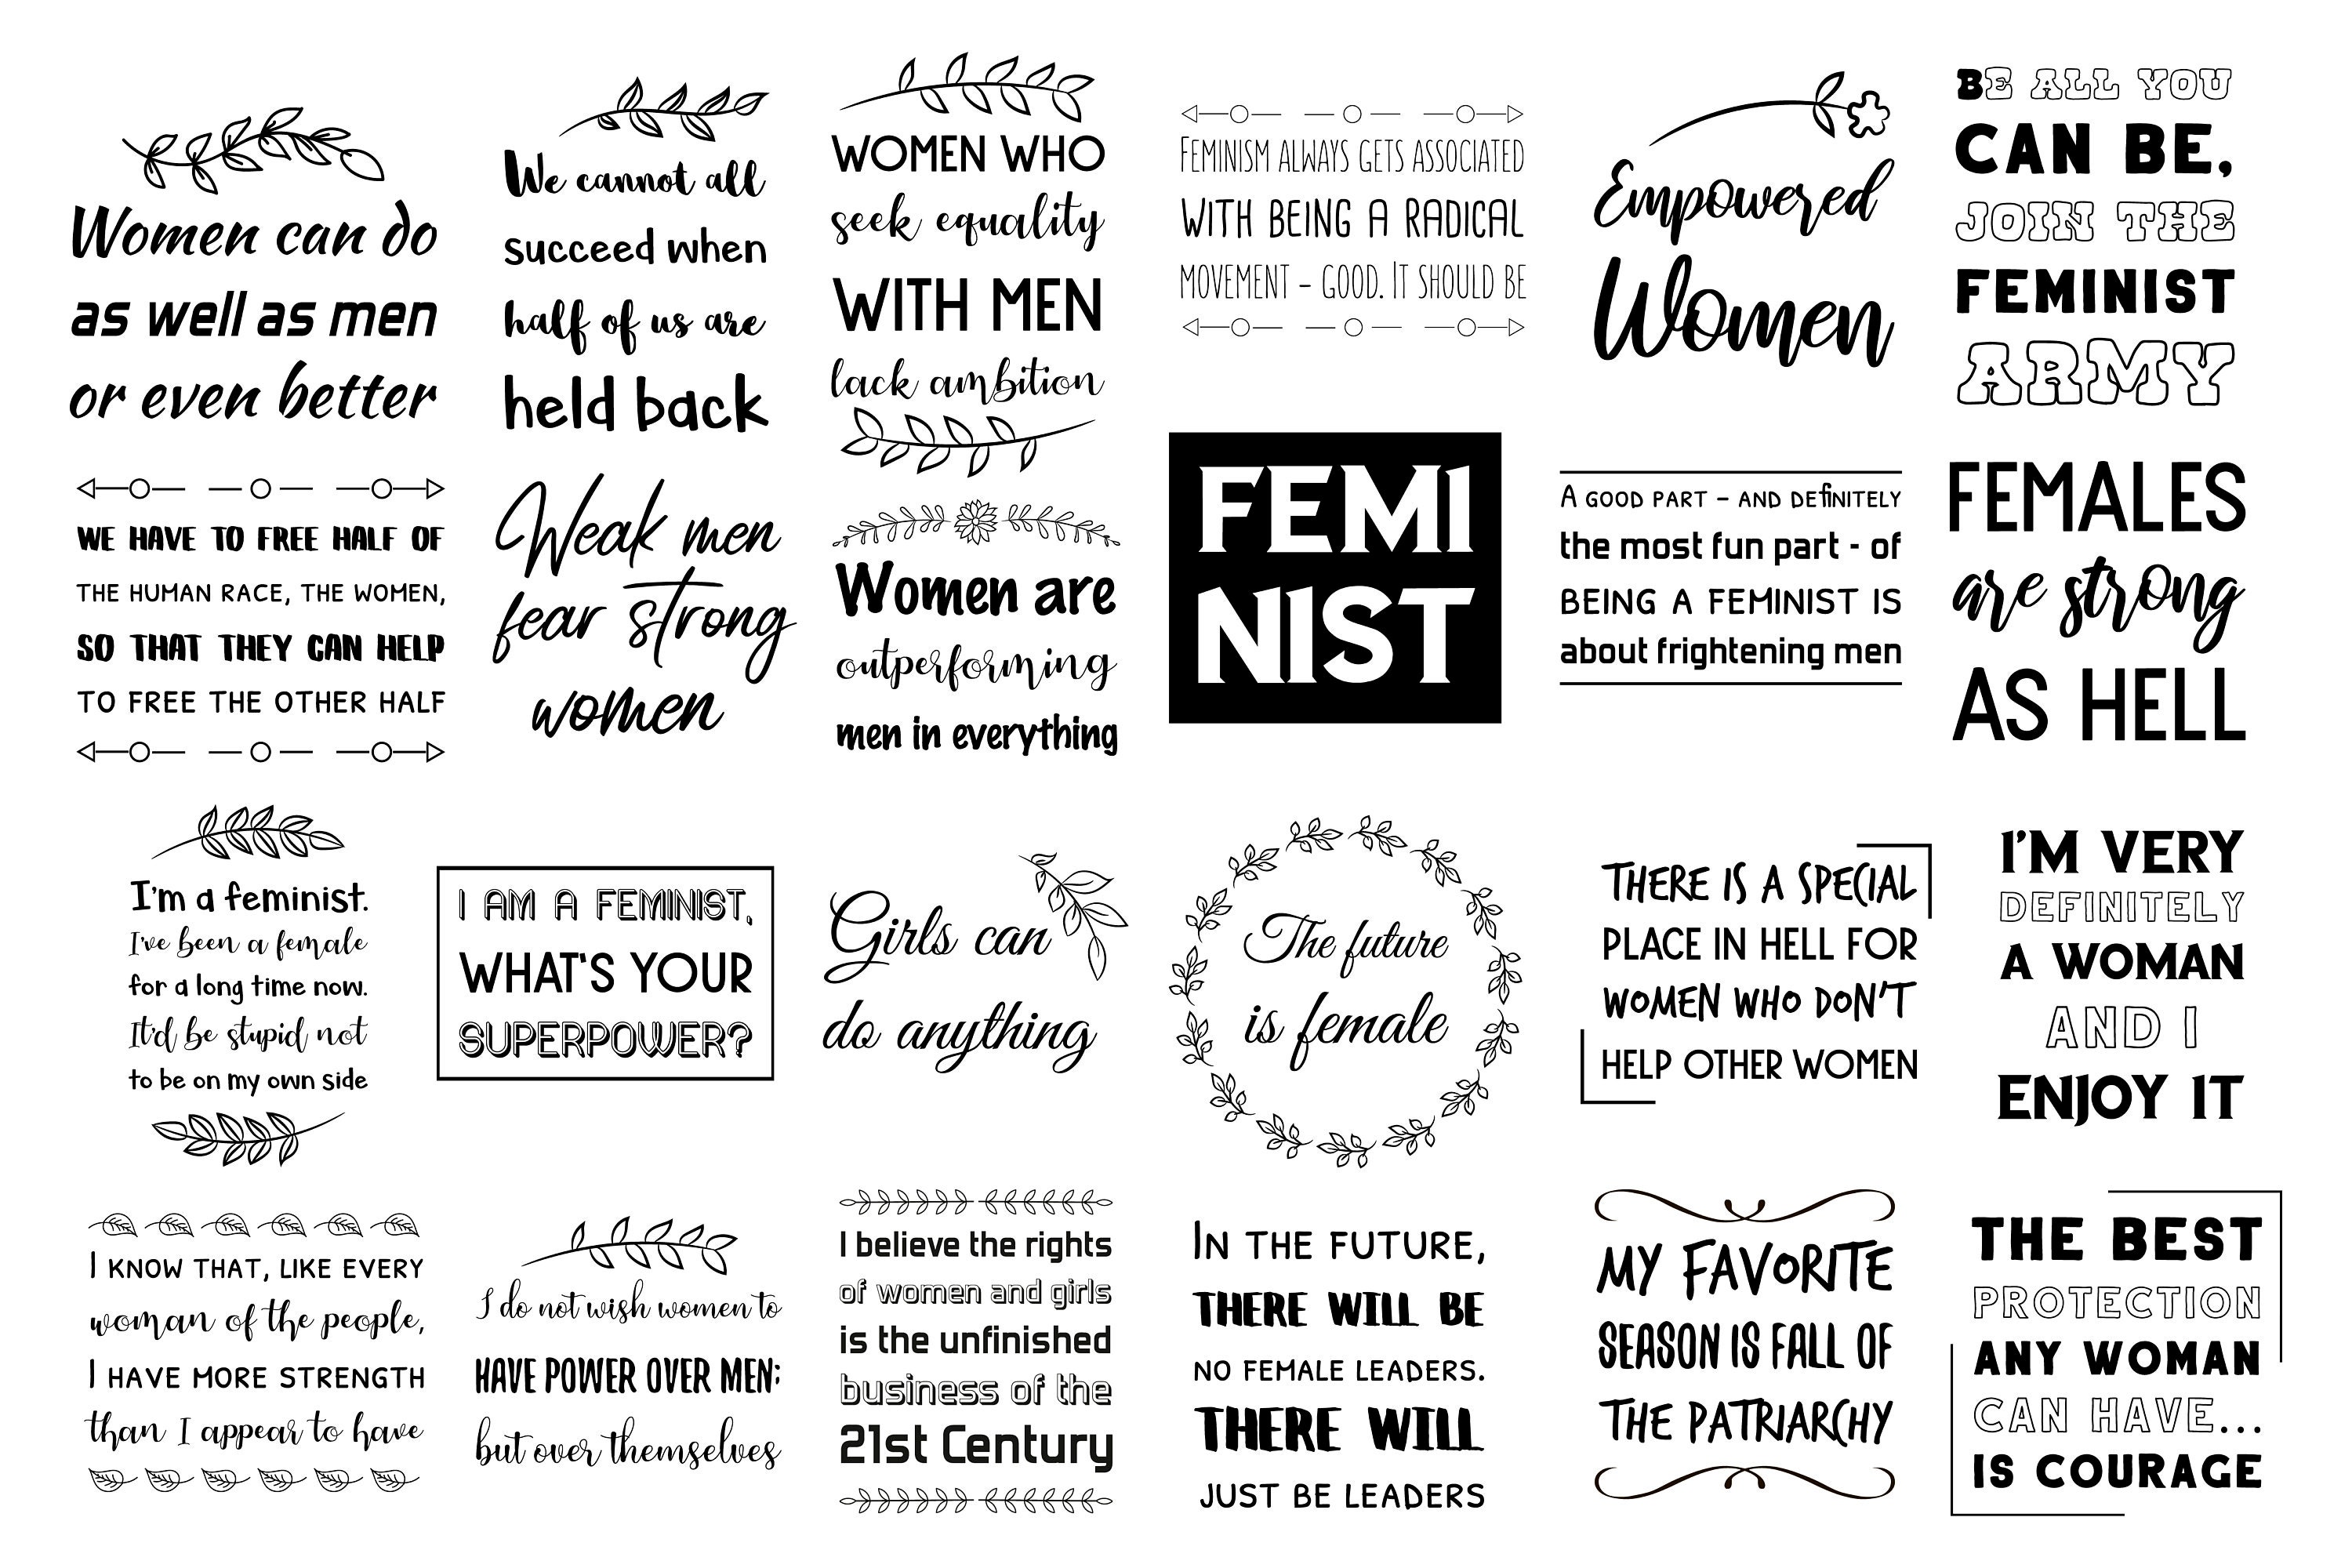 Women can do
as well as men
or even better
We cannot all
succeed when
half of us are
held back
WOMEN WHO
seek equality
WITH MEN
lack ambition
FEMINISM ALWAYS GETS ASSOCIATED
WITH BEING A RADICAL
MOVEMENT – GOOD. IT SHOULD BE
Empowered
Women
BE ALL YOU
CAN BE,
JOIN THE
FEMINIST
ARMY
WE HAVE TO FREE HALF OF
THE HUMAN RACE, THE WOMEN,
SO THAT THEY CAN HELP
TO FREE THE OTHER HALF
Weak men
fear strong
women
Women are
outperforming
men in everything
FEMI
NIST
A GOOD PART – AND DEfiNITELY
the most fun part - of
BEING A FEMINIST IS
about frightening men
FEMALES
are strong
AS HELL
I'm a feminist.
I've been a female
for a long time now.
It'd be stupid not
to be on my own side
I AM A FEMINIST,
WHAT'S YOUR
SUPERPOWER?
Girls can
do anything
The future
is female
THERE IS A SPECIAL
PLACE IN HELL FOR
WOMEN WHO DON'T
HELP OTHER WOMEN
I'M VERY
DEFINITELY
A WOMAN
AND I
ENJOY IT
I KNOW THAT, LIKE EVERY
woman of the people,
I HAVE MORE STRENGTH
than I appear to have
I do not wish women to
HAVE POWER OVER MEN;
but over themselves
I believe the rights
of women and girls
is the unfinished
business of the
21st Century
IN THE FUTURE,
THERE WILL BE
NO FEMALE LEADERS.
THERE WILL
JUST BE LEADERS
MY FAVORITE
SEASON IS FALL OF
THE PATRIARCHY
THE BEST
PROTECTION
ANY WOMAN
CAN HAVE...
IS COURAGE